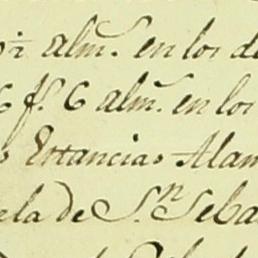 ½ almˢ. en los de
6 fˢ. 6 almˢ. en los
Estancias Alam
ela de Sⁿ. Seba